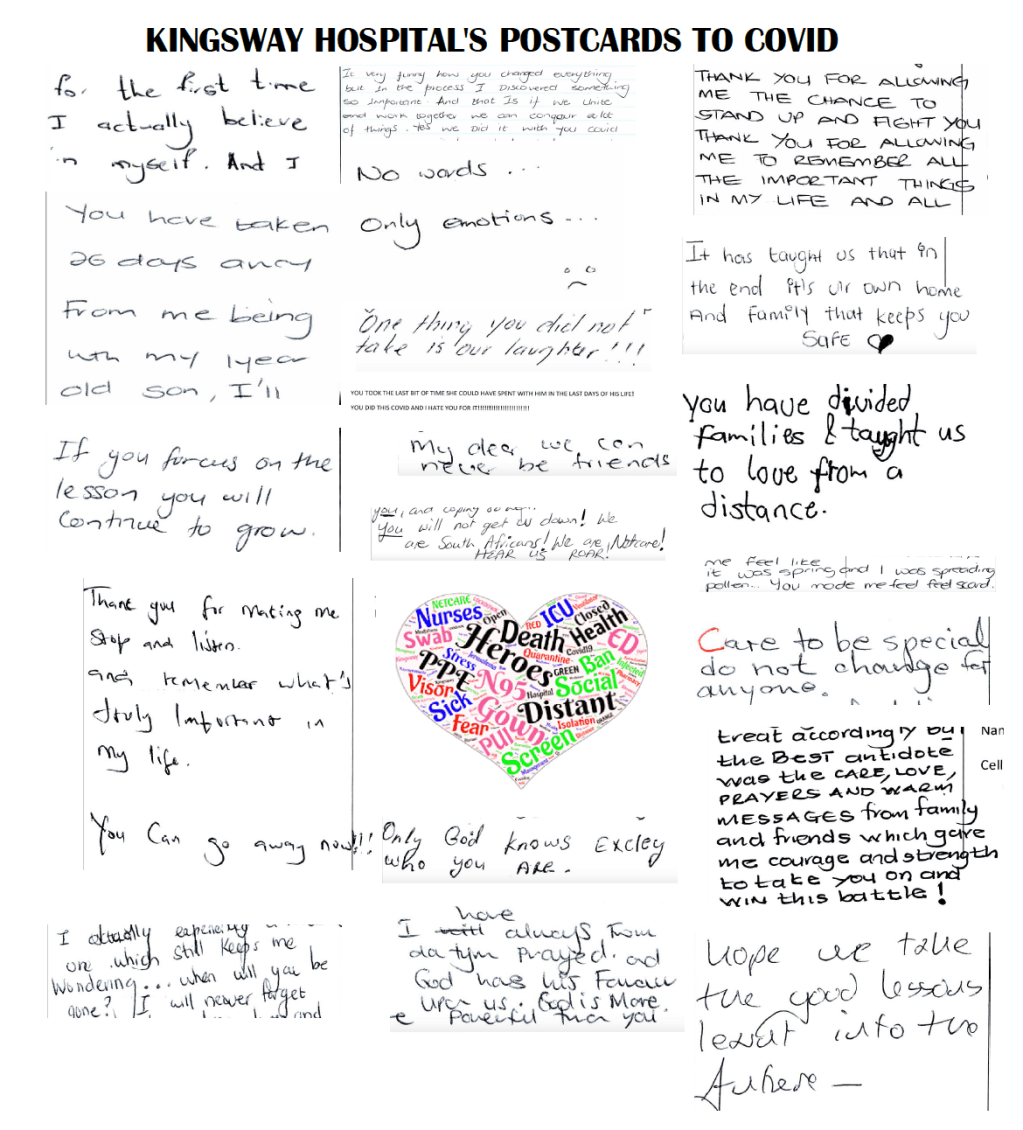 KINGSWAY HOSPITAL'S POSTCARDS TO COVID
for the first time
I actually believe
in myself. And I
You have taken
26 days away
From me being
with my 1 year
old son, I'll
If you forcus on the
lesson you will
Continue to grow.
Thank you for making me
Stop and listen.
and remember what's
truly Important in
my life.
You Can go away now!!!
I actually experiency
one which still Keeps me
Wondering... when will you be
gone? I will never forget
and
It very funny how you changed everything
but In the process I Discovered something
so Important. And that Is if we Unite
and work together we can conquor a lot
of things. Yes we Did it with you covid
No words ...
Only emotions ...
"One thing you did not
take is our laughter!!!"
YOU TOOK THE LAST BIT OF TIME SHE COULD HAVE SPENT WITH HIM IN THE LAST DAYS OF HIS LIFE!
YOU DID THIS COVID AND I HATE YOU FOR IT!!!!!!!!!!!!!!!!!!!!!!!!!
My dear we can
never be friends
you, and coping
You will not get us down! We
are South Africans! We are Netcare!
HEAR US ROAR!
NETCARE
Nurses
Open
RED
ICU
Closed
Swab
Heroes
Death
Health
Covid19
ED
Stress
Quarantine
GREEN
Ban
Infected
PPE
N95
Hospital
Social
Visor
Distant
Sick
Gown
Isolation
Fear
PUI
Screen
Only God knows Excley
who you ARE.
have
I will always From
da tym Prayed. ad
God has his Favour
Upon us. God is More
Powerful than you
THANK YOU FOR ALLOWING
ME THE CHANCE TO
STAND UP AND FIGHT YOU
THANK YOU FOR ALLOWING
ME TO REMEMBER ALL
THE IMPORTANT THINGS
IN MY LIFE AND ALL
It has taught us that in
the end it's ur own home
And family that keeps you
Safe
you have divided
families & taught us
to love from a
distance.
me feel like
it was spring and I was spreading
pollen... You made me feel feel scard.
Care to be special
do not change for
anyone.
treat accordingly but
the BEST antidote
was the CARE, LOVE,
PRAYERS AND WARM
MESSAGES from family
and friends which gave
me courage and strength
to take you on and
WIN this battle!
Nan
Cell
Hope we take
the good lessons
learnt into the